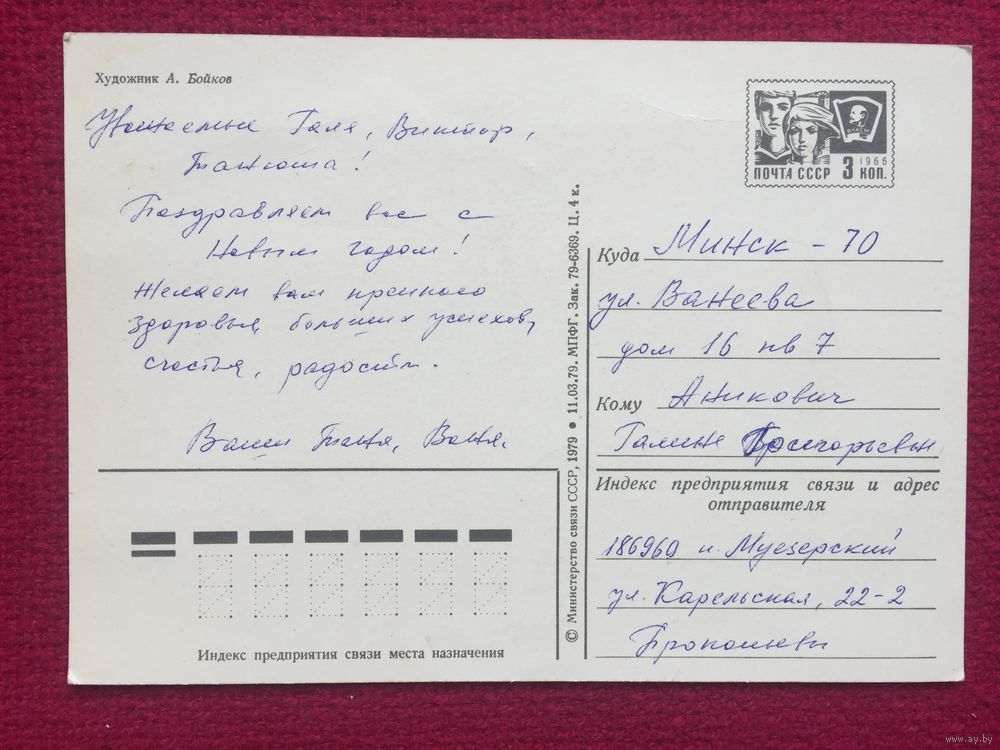 Художник А. Бойков
Уважаемые Галя, Виктор,
Танюша!
Поздравляем вас с
Новым годом!
Желаем вам крепкого
здоровья, больших успехов,
счастья, радости.
Ваши Таня, Ваня.
Индекс предприятия связи места назначения
© Министерство связи СССР, 1979 ● 11.03.79. МПФГ. Зак. 79-6369. Ц. 4 к.
ВЛКСМ
1966
ПОЧТА СССР 3 КОП.
Куда Минск - 70
ул. Ванеева
дом 16 кв 7
Кому Аникович
Галине Григорьевне
Индекс предприятия связи и адрес
отправителя
186960 п. Муезерский
ул. Карельская, 22-2
Прокопьевы
www.ay.by